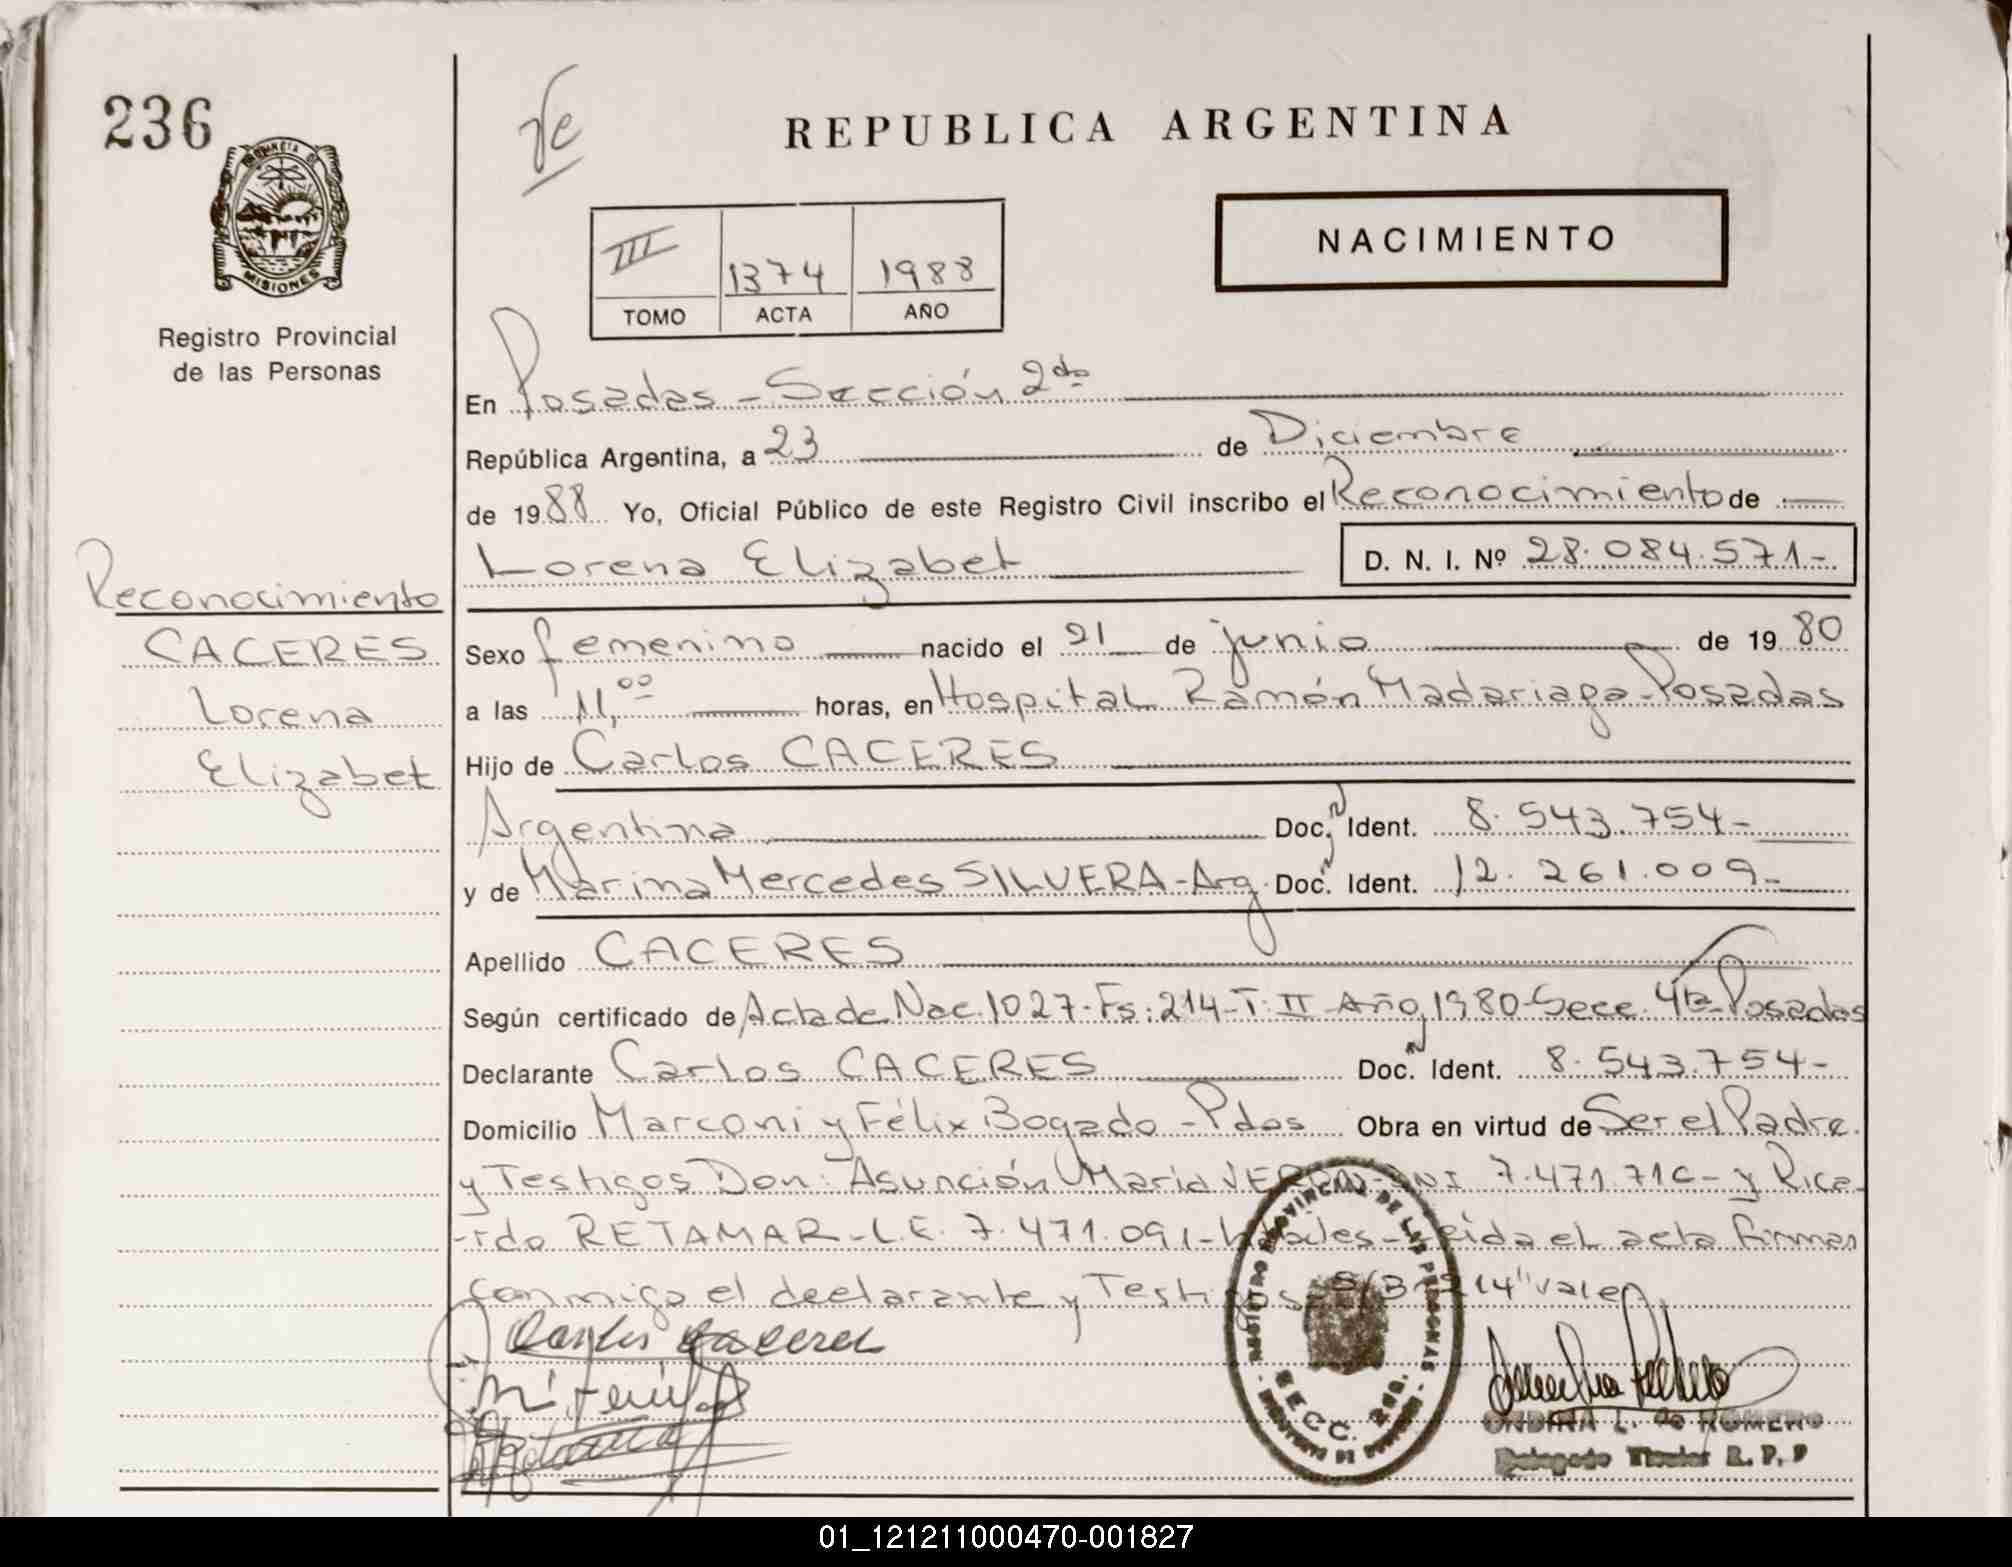 236
REPUBLICA ARGENTINA
PROVINCIA DE
MISIONES
Registro Provincial
de las Personas
NACIMIENTO
III 1374 1988
TOMO ACTA AÑO
En Posadas - Sección 2da
República Argentina, a 23 de Diciembre
de 1988 Yo, Oficial Público de este Registro Civil inscribo el Reconocimiento de
Lorena Elizabet D. N. I. Nº 28.084.571-
Reconocimiento
CACERES
Lorena
Elizabet
Sexo femenino nacido el 21 de junio de 1980
a las 11,00 horas, en Hospital Ramón Madariaga-Posadas
Hijo de Carlos CACERES
Argentina Doc. Ident. 8.543.754-
y de Marina Mercedes SILVERA-Arg. Doc. Ident. 12.261.009-
Apellido CACERES
Según certificado de Acta de Nac. 1027-Fs:214-T:II-Año 1980-Secc. 4ta-Posadas
Declarante Carlos CACERES Doc. Ident. 8.543.754-
Domicilio Marconi y Félix Bogado - Pdas Obra en virtud de Ser el Padre
y Testigos Don: Asunción María DNI 7.471.716- y Rica-
-rdo RETAMAR-L.E. 7.471.091-hábiles-Leida el acta firman
conmigo el declarante y Testigos-S/B "214" vale
Carlos Caceres
REGISTRO PROVINCIAL DE LAS PERSONAS
SECC. 2da.
ONDINA L. de ROMERO
Delegado Titular R. P. P
01_121211000470-001827